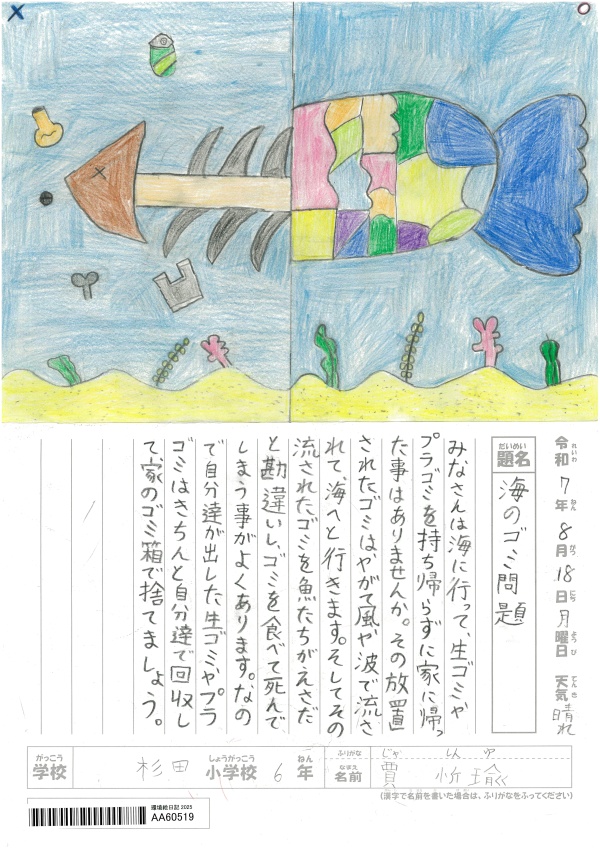 X
O
令和7年8月18日月曜日 天気 晴れ
れいわ ねん がつ にち ようび てんき
だいめい
題名
海のゴミ問題
みなさんは海に行って、生ゴミや
プラゴミを持ち帰らずに家に帰っ
た事はありませんか。その放置
されたゴミはやがて風や波で流さ
れて海へと行きます。そしてその
流されたゴミを魚たちがえさだ
と勘違いし、ゴミを食べて死んで
しまう事がよくあります。なの
で自分達が出した生ゴミやプラ
ゴミはきちんと自分達で回収し
て、家のゴミ箱で捨てましょう。
がっこう しょうがっこう ねん ふりがな じゃ しん ゆ
学校 杉田 小学校 6年 なまえ 名前 賈 忻瑜
(漢字で名前を書いた場合は、ふりがなをふってください)
環境絵日記 2025
AA60519